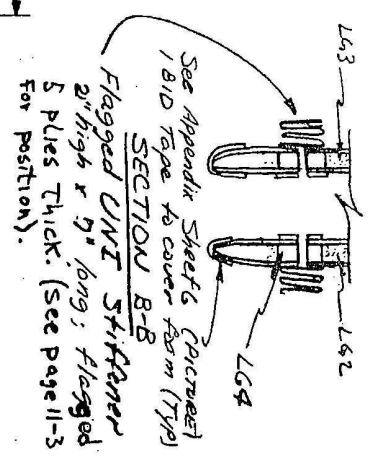 LG3
LG2
LG4
See Appendix Sheet 6 (PICTURE)
1 BID Tape to cover foam (Typ)
SECTION B-B
Flagged UNI Stiffener
2" high x 7" long; flagged
5 plies thick. (See page 11-3
for position).